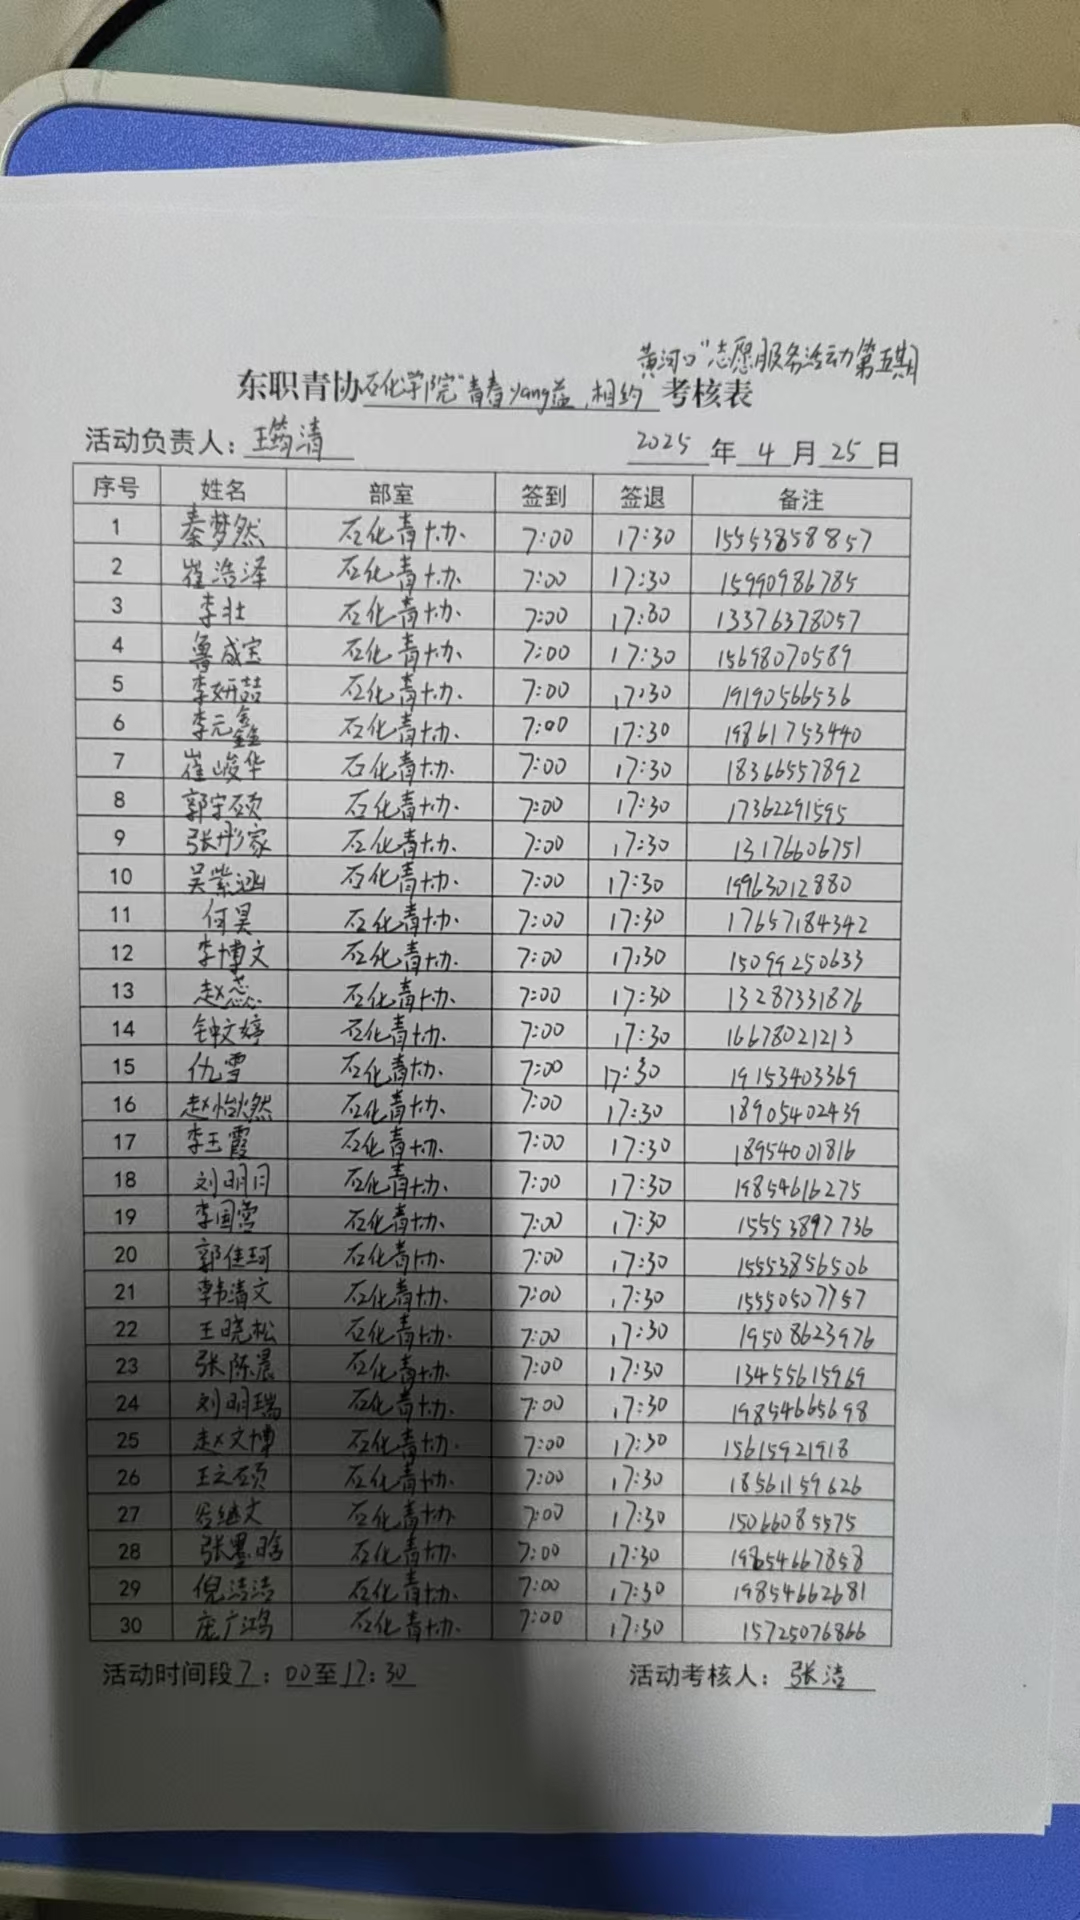 黄河口"志愿服务活动第五期
东职青协石化学院"青春yang益,相约考核表
活动负责人：王筠清 2025年4月25日
序号 姓名 部室 签到 签退 备注
1 秦梦然 石化青协 7:00 17:30 15553858857
2 崔浩泽 石化青协 7:00 17:30 15990986785
3 李壮 石化青协 7:00 17:30 13376378057
4 鲁成宝 石化青协 7:00 17:30 15698070589
5 李妍喆 石化青协 7:00 17:30 19190566536
6 李元鑫 石化青协 7:00 17:30 19861753440
7 崔峻华 石化青协 7:00 17:30 18366557892
8 郭宇硕 石化青协 7:00 17:30 17362291595
9 张彤家 石化青协 7:00 17:30 13176606751
10 吴紫涵 石化青协 7:00 17:30 19963012880
11 何昊 石化青协 7:00 17:30 17657184342
12 李博文 石化青协 7:00 17:30 15099250633
13 赵蕊 石化青协 7:00 17:30 13287331876
14 钟文婷 石化青协 7:00 17:30 16678021213
15 仇雪 石化青协 7:00 17:30 19153403369
16 赵怡然 石化青协 7:00 17:30 18905402439
17 李玉霞 石化青协 7:00 17:30 18954001816
18 刘明月 石化青协 7:00 17:30 19854616275
19 李国营 石化青协 7:00 17:30 15553897736
20 郭佳珂 石化青协 7:00 17:30 15553856506
21 韩清文 石化青协 7:00 17:30 15550507757
22 王晓松 石化青协 7:00 17:30 19508623976
23 张陈晨 石化青协 7:00 17:30 13455615969
24 刘明瑞 石化青协 7:00 17:30 19854665698
25 赵文博 石化青协 7:00 17:30 15615921918
26 王之硕 石化青协 7:00 17:30 18561159626
27 继文 石化青协 7:00 17:30 15066085575
28 张墨晗 石化青协 7:00 17:30 19854667858
29 倪洁洁 石化青协 7:00 17:30 19854662681
30 庞广鸿 石化青协 7:00 17:30 15725076866
活动时间段7：00至17：30 活动考核人：张洁